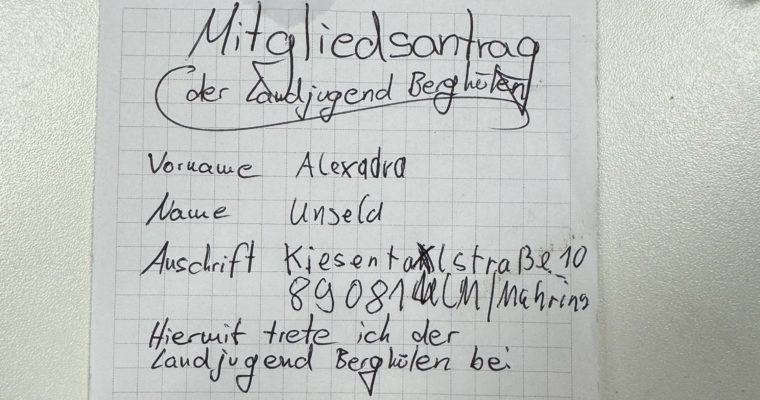 Mitgliedsantrag
der Landjugend Berghülen
Vorname Alexadra
Name Unseld
Auschrift Kiesentalstraße 10
89081 ULM/Mähring
Hiermit trete ich der
Landjugend Berghülen bei